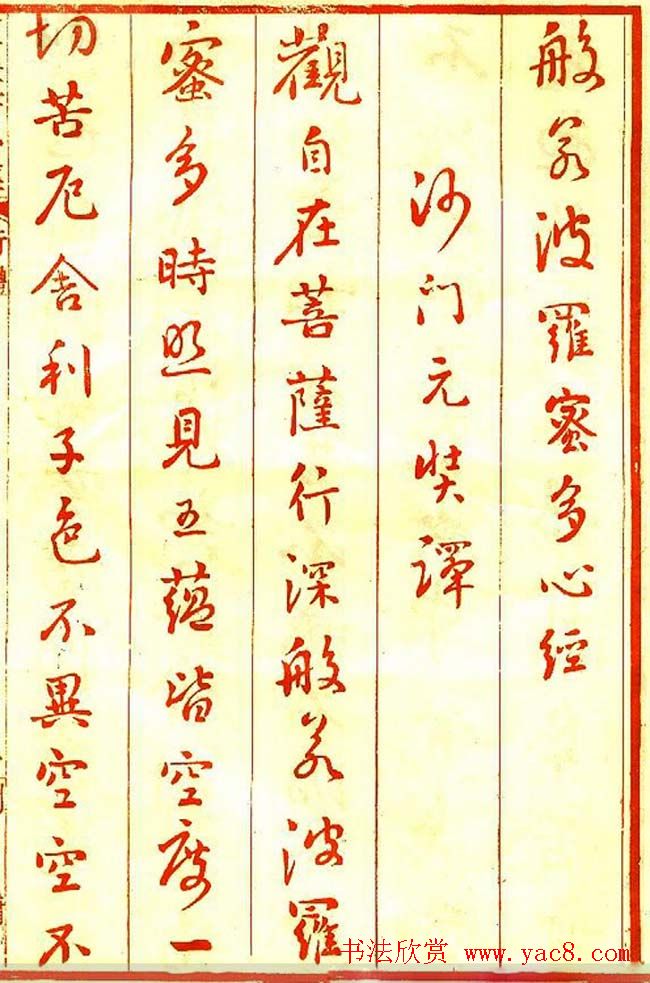 般若波羅蜜多心經
沙门元奘譯
觀自在菩薩行深般若波羅
蜜多時照見五蘊皆空度一
切苦厄舍利子色不異空空不
书法欣赏 www.yac8.com